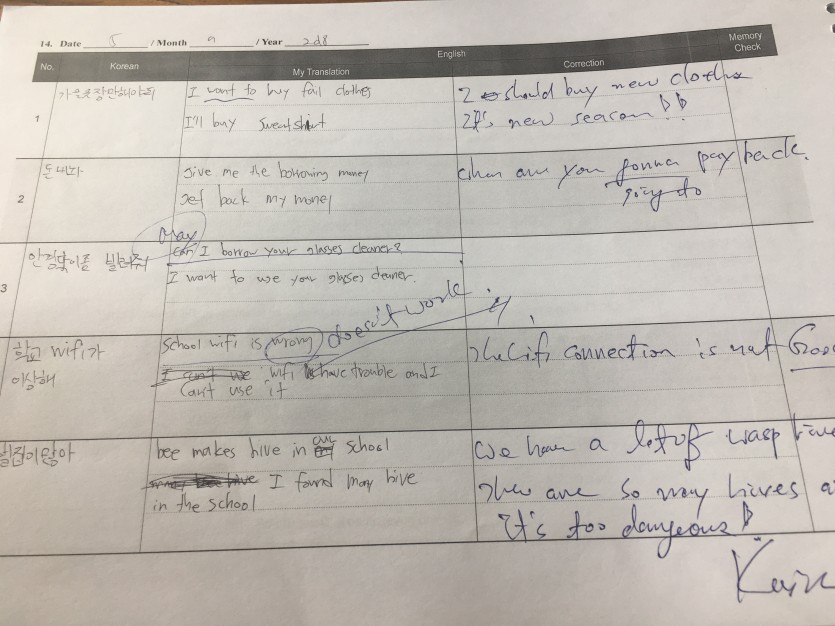 14. Date 5 / Month 9 / Year
English
Memory Check
No. Korean My Translation Correction
1
I want to buy fail clothes
I'll buy sweatshirt
I should buy new clothes
It's new season!!
2
돈 내놔
give me the borrowing money
get back my money
are you gonna pay back.
going to
3
빌려줘
May
can I borrow your glasses cleaner?
I want to use your glasses cleaner.
학교 wifi가
이상해
school wifi is wrong
doesn't work
I can't use wifi have trouble and I
can't use it
connection is not Good
bee makes hive in our school
many bee hive I found many hive
in the school
We have a lot of wasp
There are so many hives
It's too dangerous!